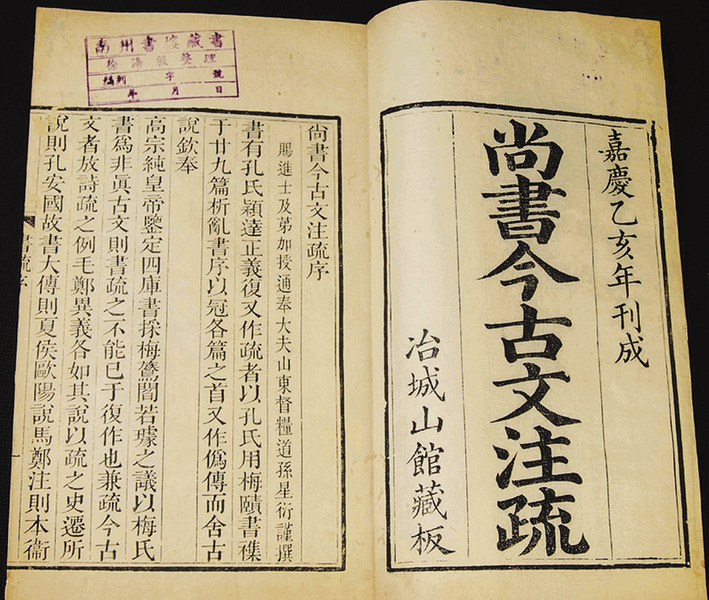 嘉慶乙亥年刊成
尚書今古文注疏
冶城山館藏板
南州書樓藏書
徐湯殷整理
編列 字 號
年 月 日
尚書今古文注疏序
賜進士及第加授通奉大夫山東督糧道孫星衍謹撰
書有孔氏穎達正義復又作疏者以孔氏用梅賾書襍
于廿九篇析亂書序以冠各篇之首又作僞傳而舍古
說欽奉
高宗純皇帝鑒定四庫書採梅鷟閻若璩之議以梅氏
書爲非眞古文則書疏之不能已于復作也兼疏今古
文者放詩疏之例毛鄭異義各如其說以疏之史遷所
說則孔安國故書大傳則夏侯歐陽說馬鄭注則本衞
書疏序